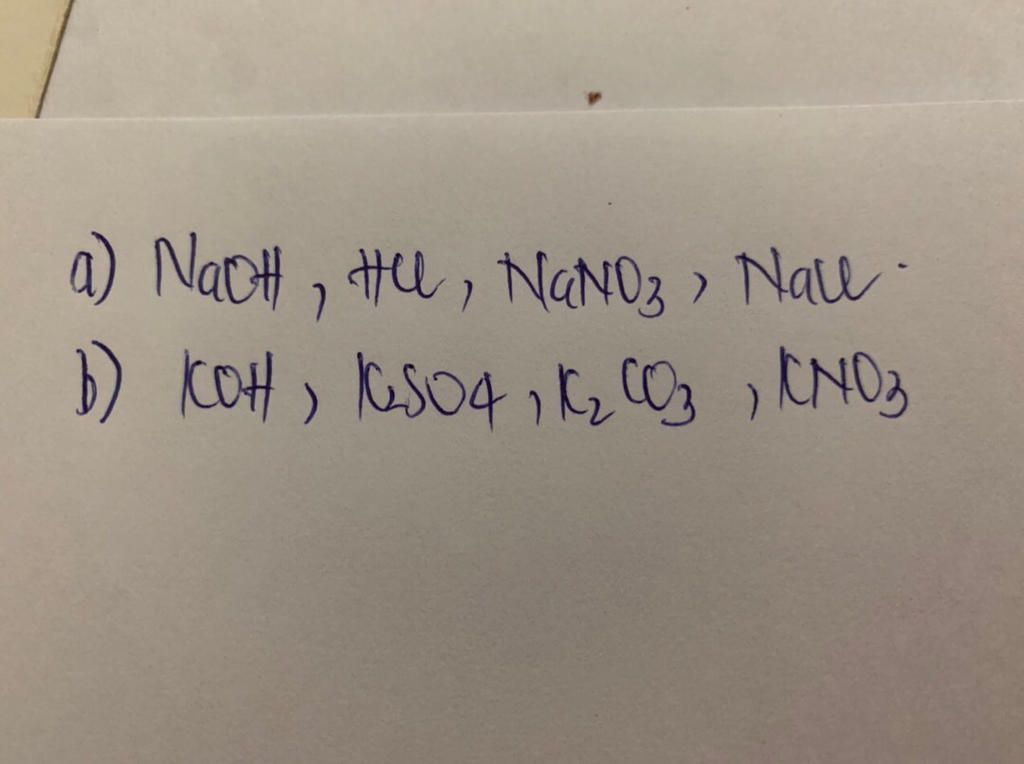 a) NaOH, HCl, NaNO3, NaCl.
b) KOH, K2SO4, K2CO3, KNO3